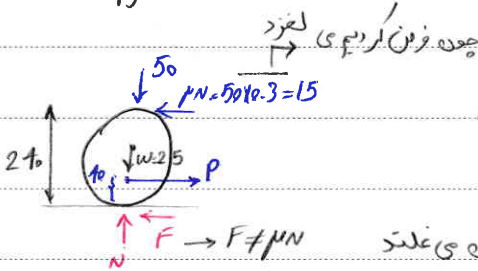 چون فرض کردیم می لغزد
50
μN=50×0.3=15
240
40
W=25
P
F → F≠μN
می غلتد
N